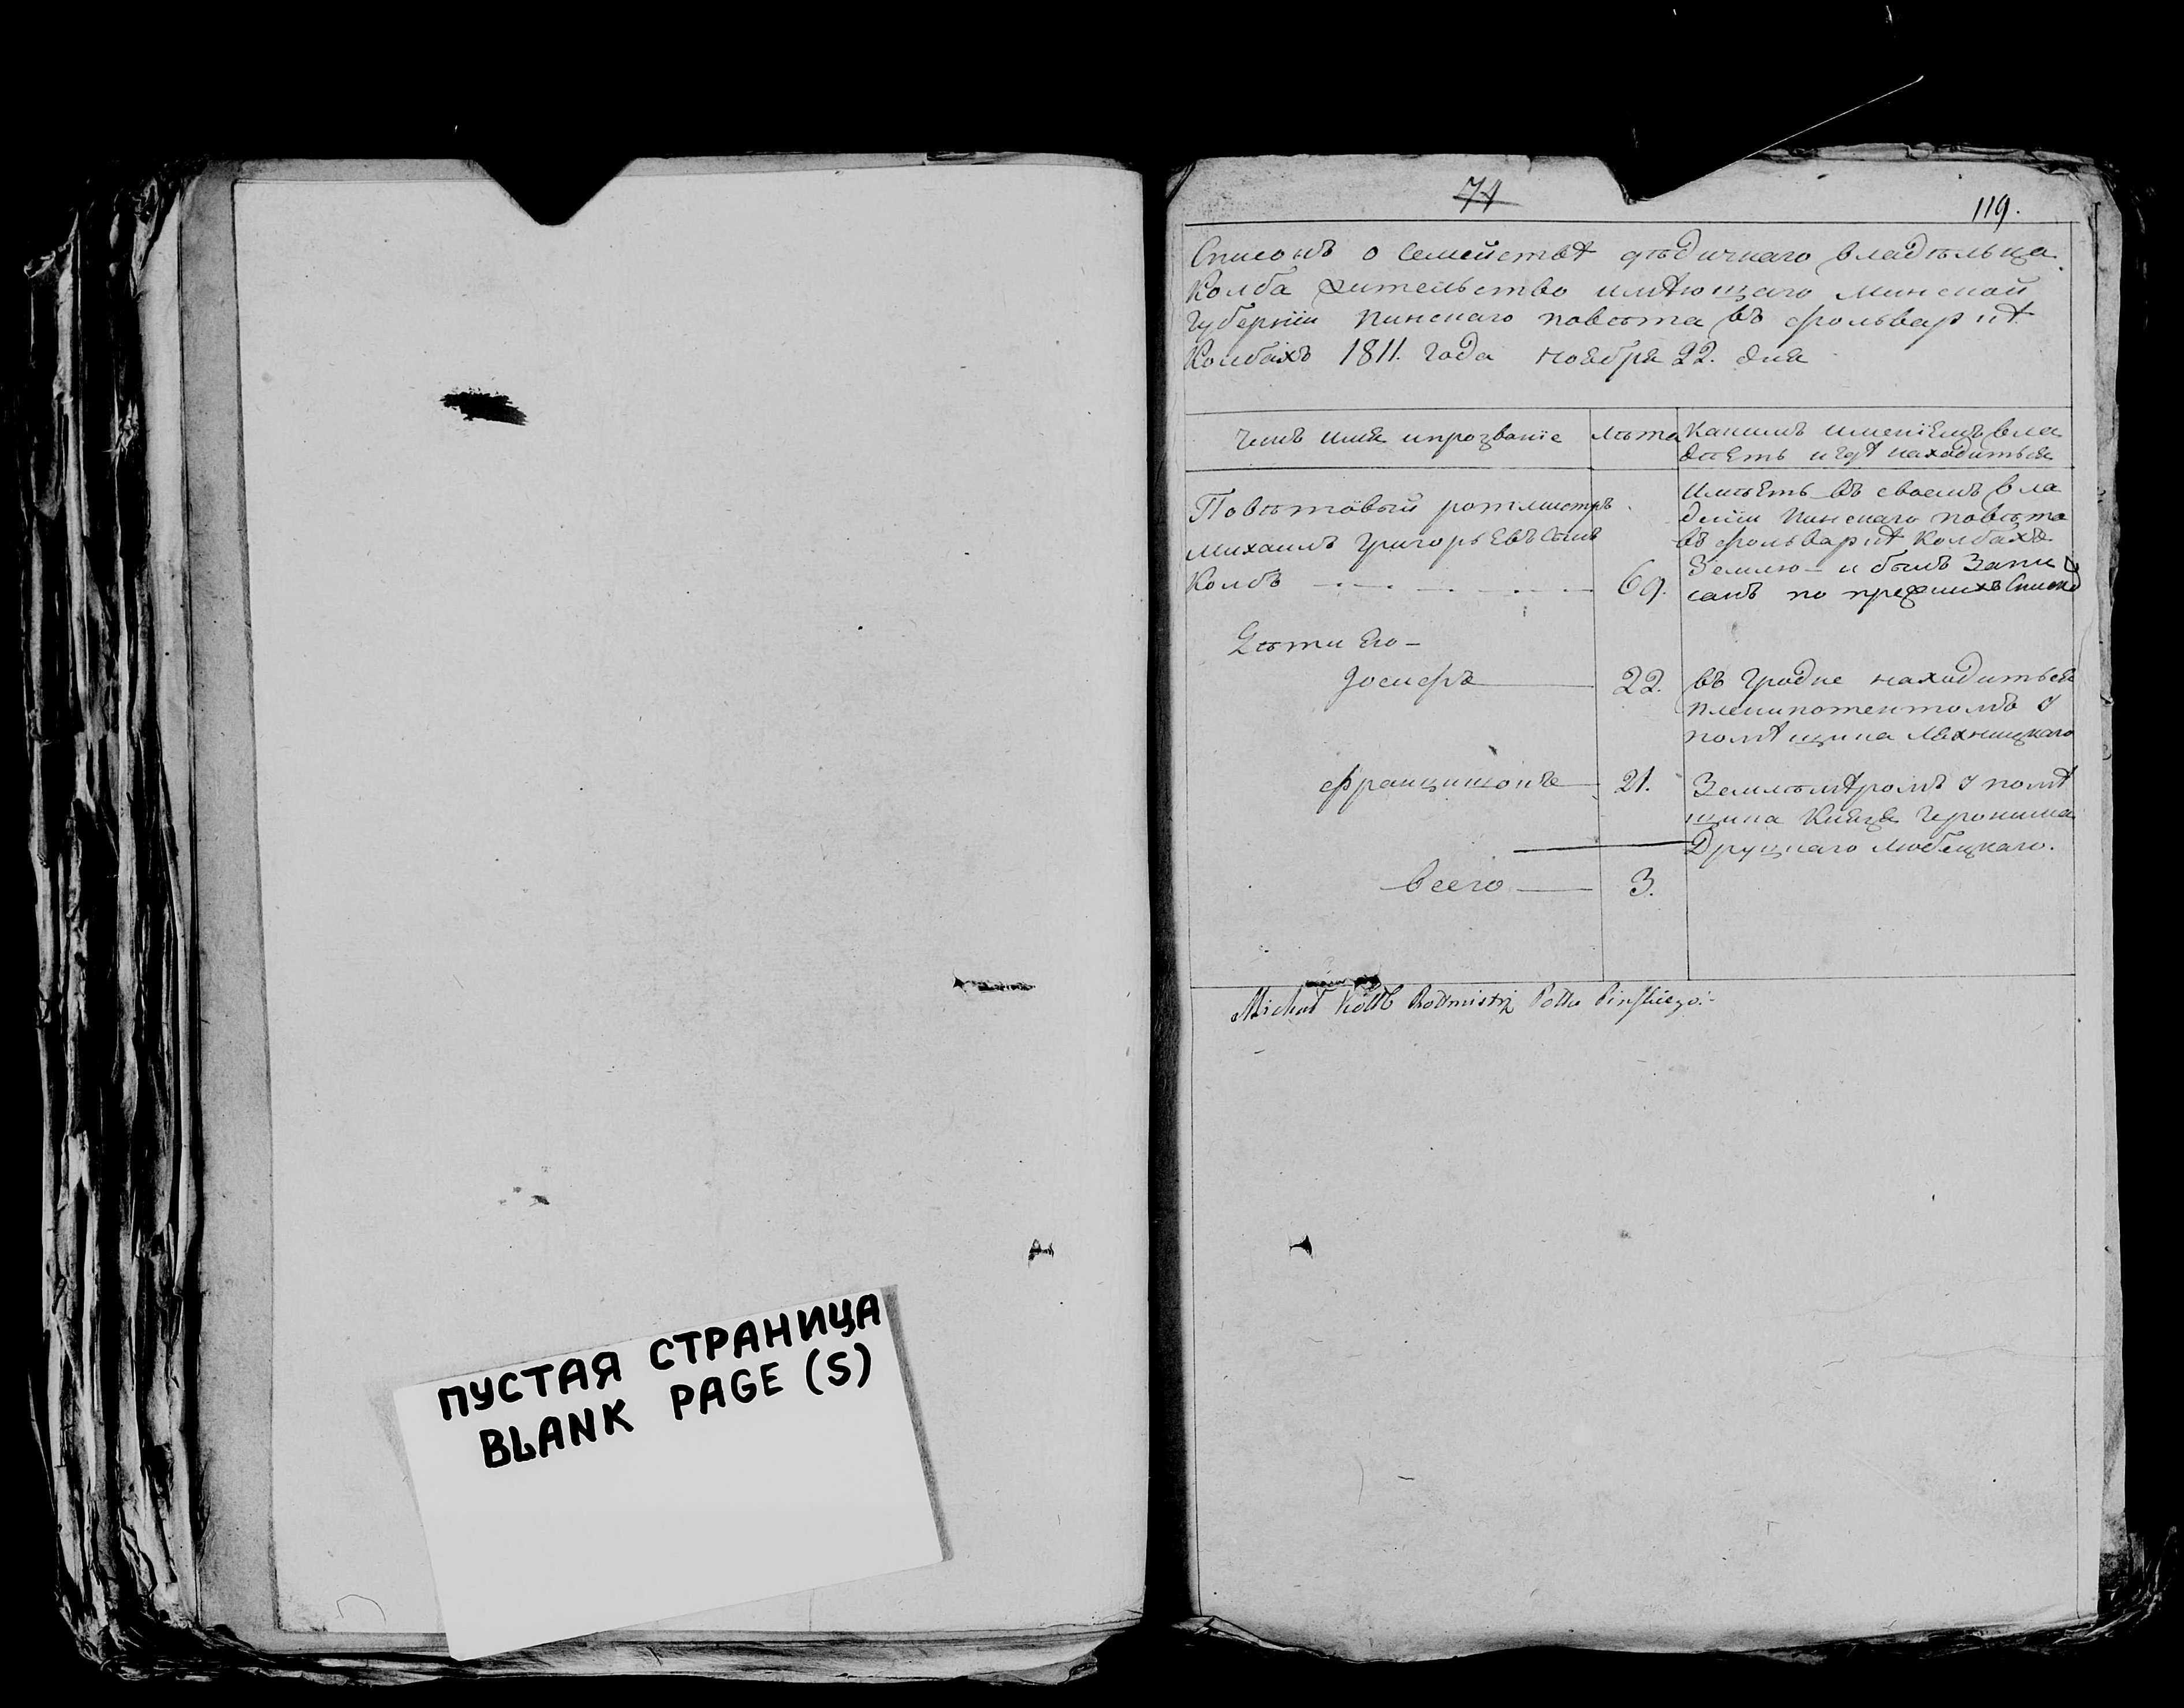 ПУСТАЯ СТРАНИЦА
BLANK PAGE (S)
74
119.
Списокъ о семействѣ дѣдичнаго владѣльца
Колба жительство имѣющаго Минской
Губернїи Пинскаго повѣта въ фольваркѣ
Колбахъ 1811. года ноября 22. дня
Чинъ имя ипрозванїе
лѣта
Какимъ имѣнїемъ вла
дѣетъ игдѣ находиться
Повѣтовый ротмистръ
Михаилъ Григорьевъ сынъ
Колбъ
69.
Имѣетъ въ своемъ вла
денїи Пинскаго повѣта
въ фольваркѣ Колбахъ
Землю – и былъ Запи
санъ по прежнихъ
Дѣти Его –
Юсифъ
22.
въ Гродне находиться
пленипотентомъ у
помѣщика
Францишокъ
21.
Землемѣромъ у помѣ
щика Князя Геронима
Друцкаго Любецкаго.
Всего
3.
Michał Kołb Rottmistrz Pottu Pinskiego: